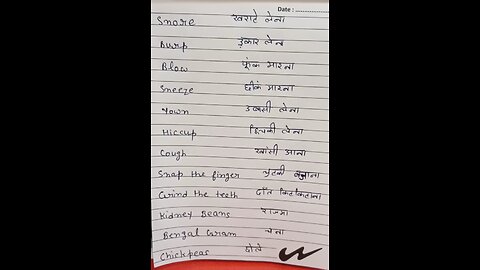 Date :
Snore खराटे लेना
Burp डकार लेना
Blow फूंक मारना
Sneeze छींक मारना
Yown उबासी लेना
Hiccup हिचकी लेना
Cough खांसी आना
Snap the finger चुटकी बजाना
Grind the teeth दाँत किटकिटाना
Kidney Beans राजमा
Bengal Gram चना
Chickpeas छोले